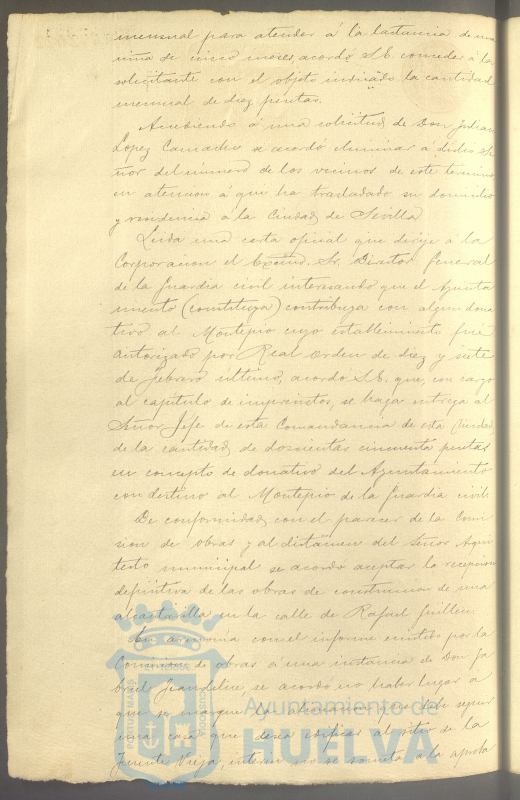 mensual para atender á la lactancia de una
niña de cinco meses, acordó S.E. conceder á la
solicitante con el objeto indicado la cantidad
mensual de diez pesetas.
Accediendo á una solicitud de Don Julian
Lopez Camacho se acordó eliminar á dicho Se
ñor del número de los vecinos de este termino
en atencion á que ha trasladado su domicilio
y residencia á la Ciudad de Sevilla
Leida una carta oficial que dirije á la
Corporacion el Excmo. Sr. Director General
de la Guardia civil interesando que el Ayunta
miento (constituya) contribuya con algun dona
tivo al Montepio cuyo establecimiento fué
autorizado por Real orden de diez y siete
de Febrero último, acordó S.E. que, con cargo
al capitulo de imprevistos, se haga entrega al
Señor Jefe de esta Comandancia de esta Ciudad
de la cantidad de doscientas cincuenta pesetas
en concepto de donativo del Ayuntamiento
con destino al Montepio de la Guardia civil.
De conformidad con el parecer de la Comi
sion de obras y al dictámen del Señor Arqui
tecto municipal se acordó aceptar la recepcion
definitiva de las obras de construccion de una
alcantarilla en la calle de Rafael Guillen.
En armonia con el informe emitido por la
Comision de obras á una instancia de Don Ga
briel se acordó no haber lugar a
que se marque la alineacion que debe seguir
una casa que desea edificar al sitio de la
Fuente Vieja, interin no se someta á la aproba
Ayuntamiento de
HUELVA
PORTUS MARIS
CUSTODIA